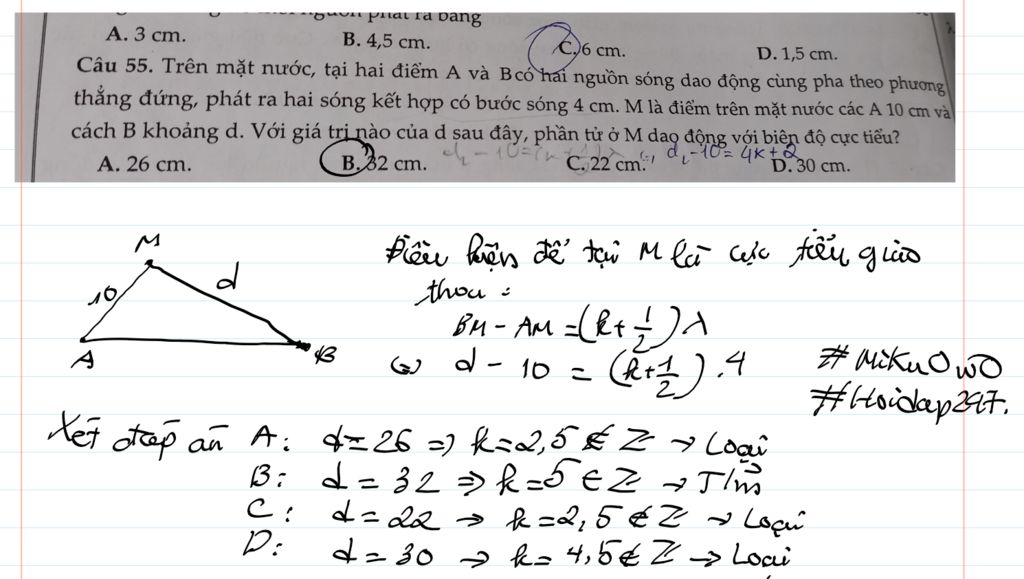 nguồn phát ra bằng
A. 3 cm. B. 4,5 cm. C. 6 cm. D. 1,5 cm.
Câu 55. Trên mặt nước, tại hai điểm A và B có hai nguồn sóng dao động cùng pha theo phương
thẳng đứng, phát ra hai sóng kết hợp có bước sóng 4 cm. M là điểm trên mặt nước các A 10 cm và
cách B khoảng d. Với giá trị nào của d sau đây, phần tử ở M dao động với biên độ cực tiểu?
d₂ - 10 = 4k + 2
A. 26 cm. B. 32 cm. C. 22 cm. D. 30 cm.
M
10
d
A
B
Điều kiện để tại M là cực tiểu giao
thoa :
BM - AM = (k + 1/2) λ
⇔ d - 10 = (k + 1/2) . 4
#MikuOwO
#Hoidap247.
Xét đáp án A: d = 26 => k = 2,5 ∉ Z → Loại
B: d = 32 => k = 5 ∈ Z → T/m
C: d = 22 → k = 2,5 ∉ Z → Loại
D: d = 30 → k = 4,5 ∉ Z → Loại